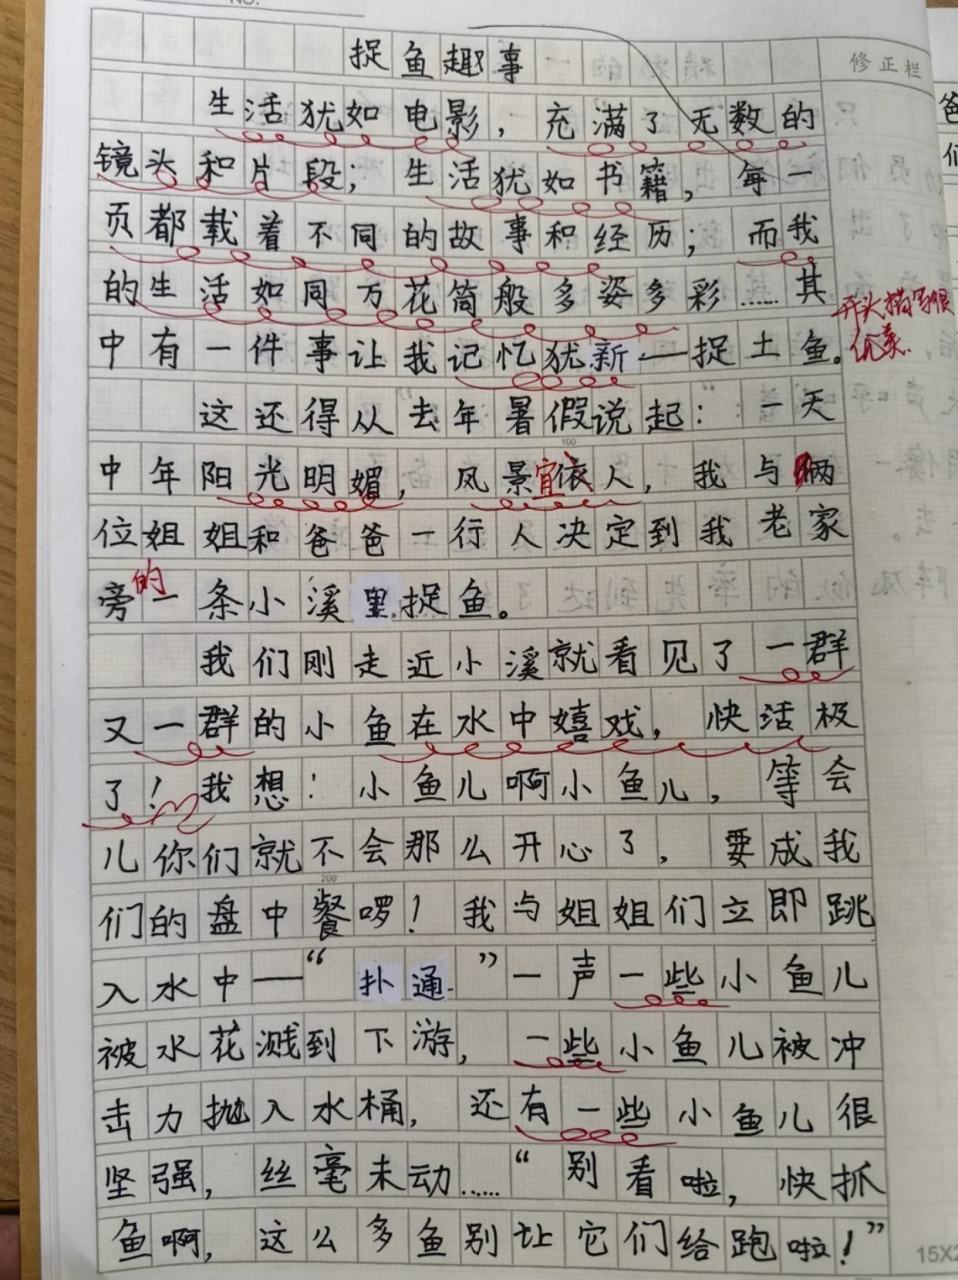 NO.
捉鱼趣事
修正栏
生活犹如电影，充满了无数的
镜头和片段；生活犹如书籍，每一
页都载着不同的故事和经历；而我
的生活如同万花筒般多姿多彩……其
开头描写很
优美.
中有一件事让我记忆犹新——捉土鱼。
这还得从去年暑假说起：一天
100
中年阳光明媚，风景宜依人，我与俩
位姐姐和爸爸一行人决定到我老家
旁的一条小溪里捉鱼。
我们刚走近小溪就看见了一群
又一群的小鱼在水中嬉戏，快活极
了！我想：小鱼儿啊小鱼儿，等会
儿你们就不会那么开心了，要成我
200
们的盘中餐啰！我与姐姐们立即跳
入水中——“扑通”一声一些小鱼儿
被水花溅到下游，一些小鱼儿被冲
击力抛入水桶，还有一些小鱼儿很
坚强，丝毫未动……“别看啦，快抓
鱼啊，这么多鱼别让它们给跑啦！”
15X2